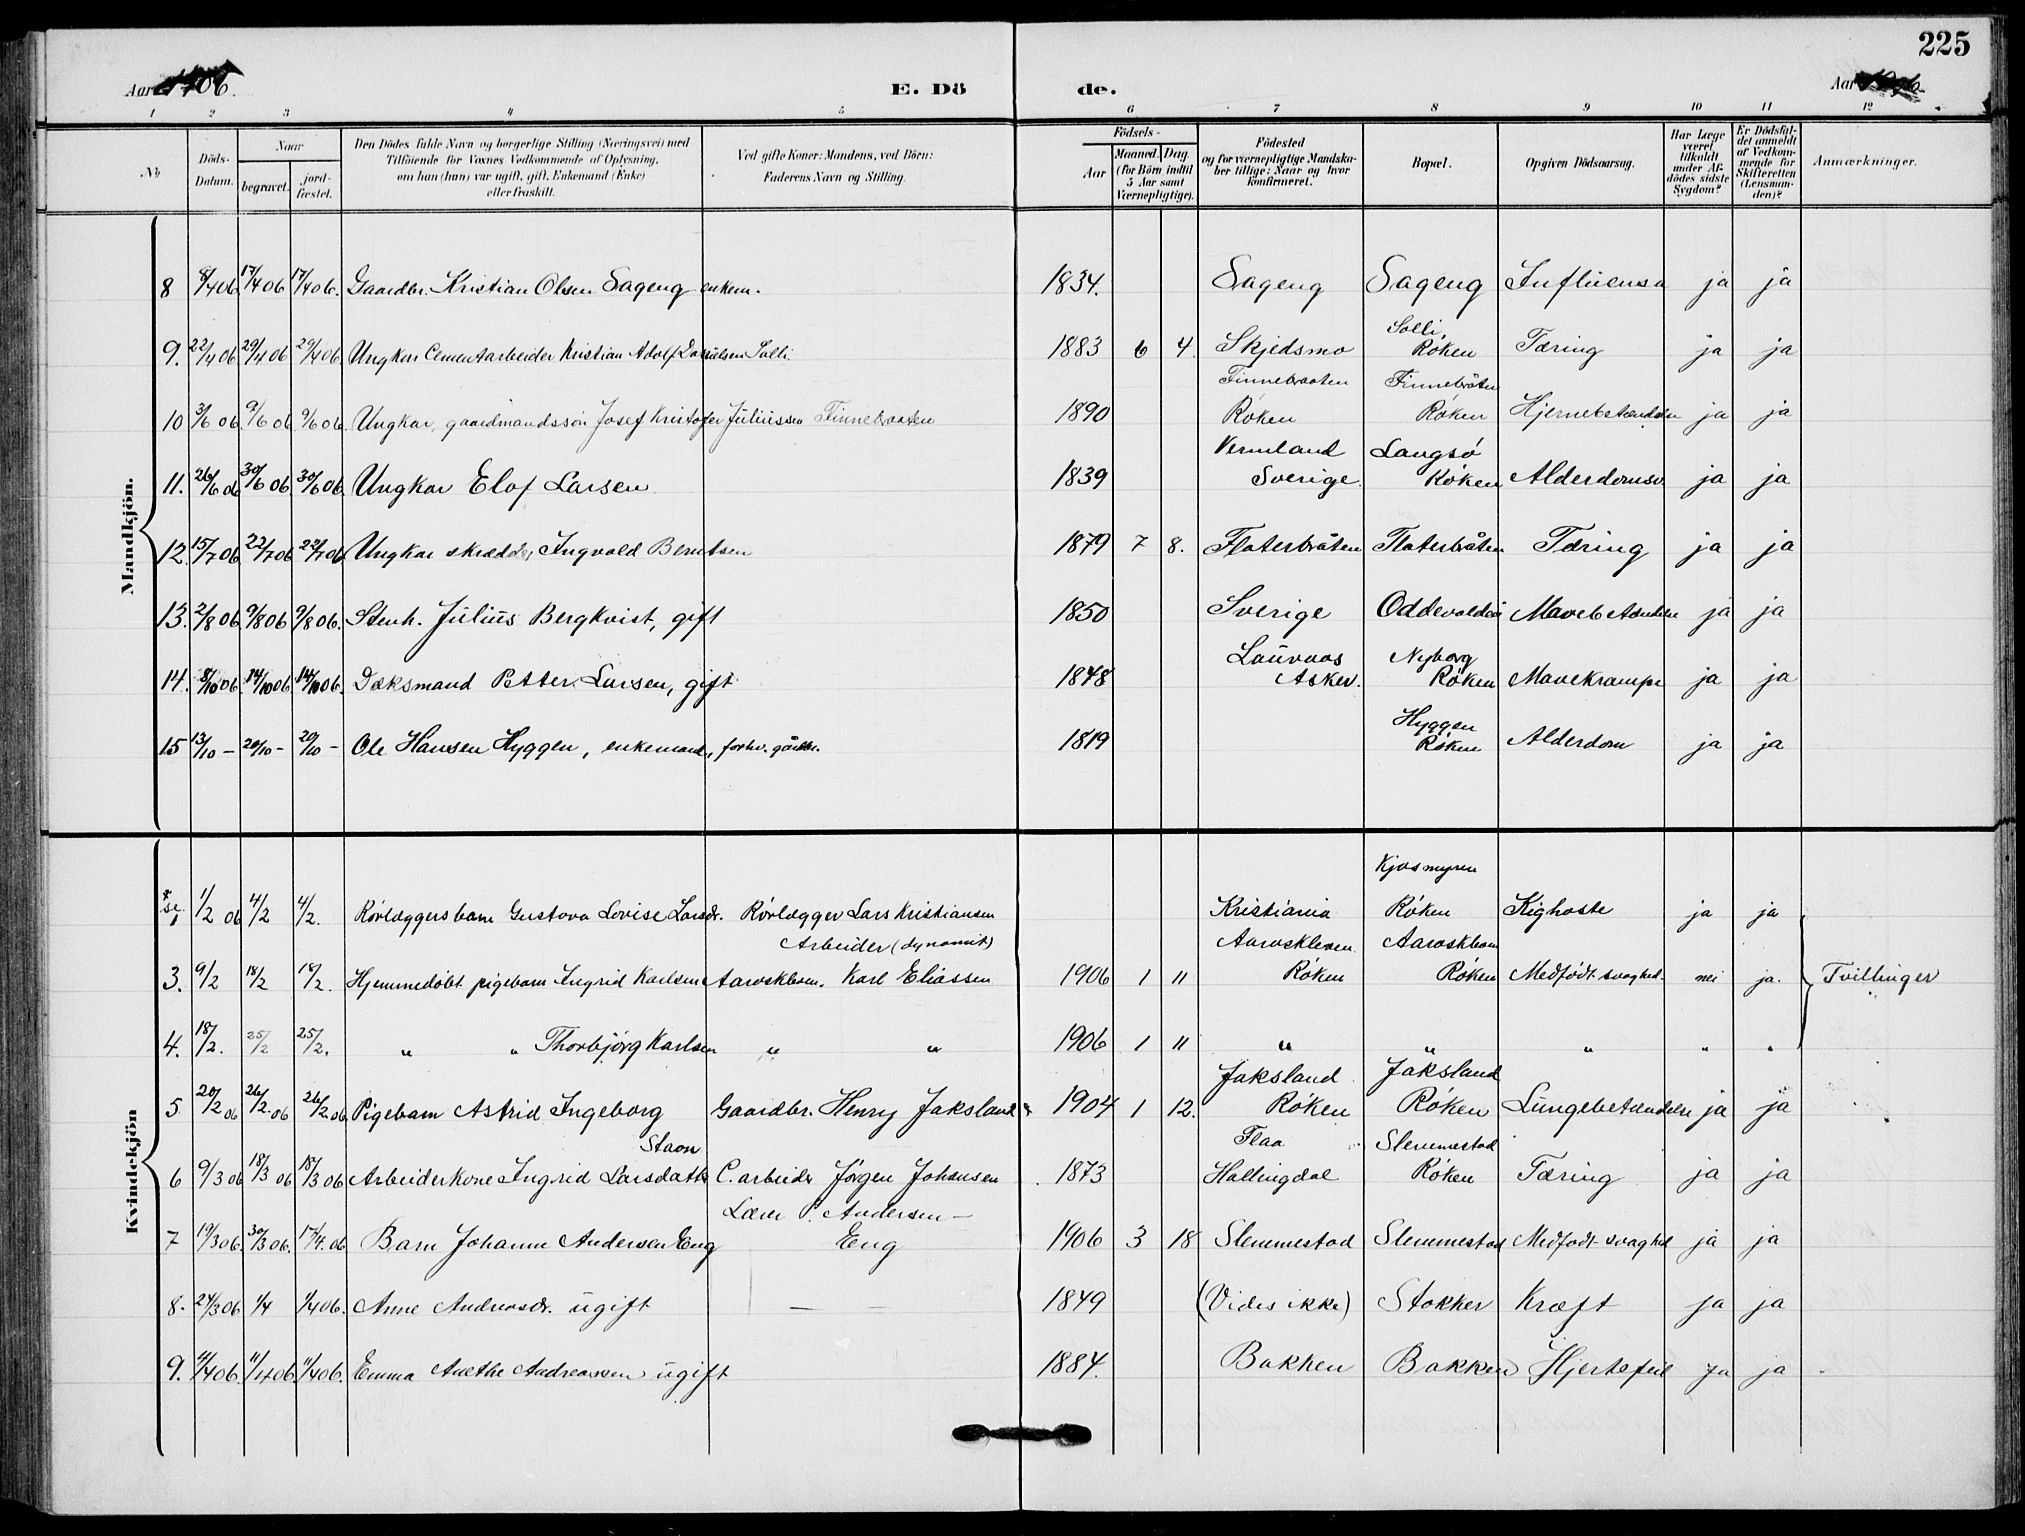 225
Aar 1906. E. Dö de. Aar 1906.
1 2 3 4 5 6 7 8 9 10 11 12
No
Döds-Datum.
Naar
begravet.
jord-fæstet.
Den Dödes fulde Navn og borgerlige Stilling (Næringsvei) med
Tilföiende for Voxnes Vedkommende af Oplysning,
om han (hun) var ugift, gift, Enkemand (Enke)
eller fraskilt.
Ved gifte Koner: Mandens, ved Börn:
Faderens Navn og Stilling.
Födsels-
Aar
Maaned. Dag.
(for Börn indtil
5 Aar samt
Værnepligtige).
Födested
og for værnepligtige Mandska-
ber tillige: Naar og hvor
konfirmeret.
Bopæl.
Opgiven Dödsaarsag.
Har Læge
været
tilkaldt
under Af-
dödes sidste
Sygdom?
Er Dödsfal-
det anmeldt
af Vedkom-
mende for
Skifteretten
(Lensman-
den)?
Anmærkninger.
Mandkjön.
8 8/4 06 17/4 06 17/4 06. Gaardbr. Kristian Olsen Sageng enkem. 1834. Sageng Sageng Influensa ja ja
Solli,
9. 22/4 06 29/4 06 29/4 06 Ungkar Cementarbeider Kristian Adolf Danielsen Solli 1883 6 4 Skjedsmo Röken Tæring ja ja
Finnebraaten Finnebråten
10 3/6 06 9/6 06 9/6 06. Ungkar, gaardmandssön Josef Kristofer Juliussen Finnebraaten 1890 Röken Röken Hjernebetændelse ja ja
Vermland Langsö
11. 26/6 06 30/6 06 30/6 06 Ungkar Elof Larsen 1839 Sverige. Röken Alderdomssv ja ja
12. 15/7 06 22/7 06 22/7 06 Ungkar skrædder, Ingvald Berntsen 1879 7 8. Flaterbråten Flaterbråten Tæring ja ja
13. 2/8 06 9/8 06 9/8 06. Stenh. Julius Bergkvist, gift 1850 Sverige Oddevalden Mavebetændelse ja ja
Lauvaas Nyborg
14. 8/10 06 14/10 06 14/10 06. Dæksmand Petter Larsen, gift 1848 Asker. Röken Mavekrampe ja ja
Hyggen
15 13/10 - 20/10 - 20/10 - Ole Hansen Hyggen, enkemand, forhv. gårdbr. 1819 Röken Alderdom ja ja
Kvindekjön
Kjosmyren
1/2 06 4/2 4/2. Rörlæggersbarn Gustava Lovise Larsdr. Rörlægger Lars Kristiansen Kristiania Röken Kighoste ja ja
Arbeider (dynamit) Aaroskleven Aaroskleven
3. 9/2 18/2 18/2. Hjemmedöbt pigebarn Ingrid Karlsen Aaroskleven. Karl Eliassen 1906 1 11 Röken Röken Medfödt svaghed. nei ja. Tvillinger
4. 18/2. 25/2 25/2. " " Thorbjörg Karlsen " " 1906 1 11 " " " " "
Jaksland Jaksland
5 20/2 06 26/2 06 26/2 06 Pigebarn Astrid Ingeborg Gaardbr. Henry Jaksland 1904 1 12. Röken Röken Lungebetændelse ja ja
Staon Flaa Slemmestad
6 9/3 06 18/3 06 18/3 06 Arbeiderkone Ingrid Larsdatter C. arbeider Jörgen Johansen 1873 Hallingdal Röken Tæring ja ja
Lærer P. Andersen
7 19/3 06. 30/3 06. 17/4. 06 Barn Johanne Andersen Eng Eng 1906 3 18 Slemmestad Slemmestad Medfödt svaghed ja ja
8. 24/3 06 1/4 1/4 06. Anne Andreasdr. ugift — — 1849 (Vides ikke) Stokker Kræft ja ja
9. 4/4 06. 11/4 06. 11/4 06. Emma Anethe Andreassen ugift 1884. Bakken Bakken Hjertefeil ja ja